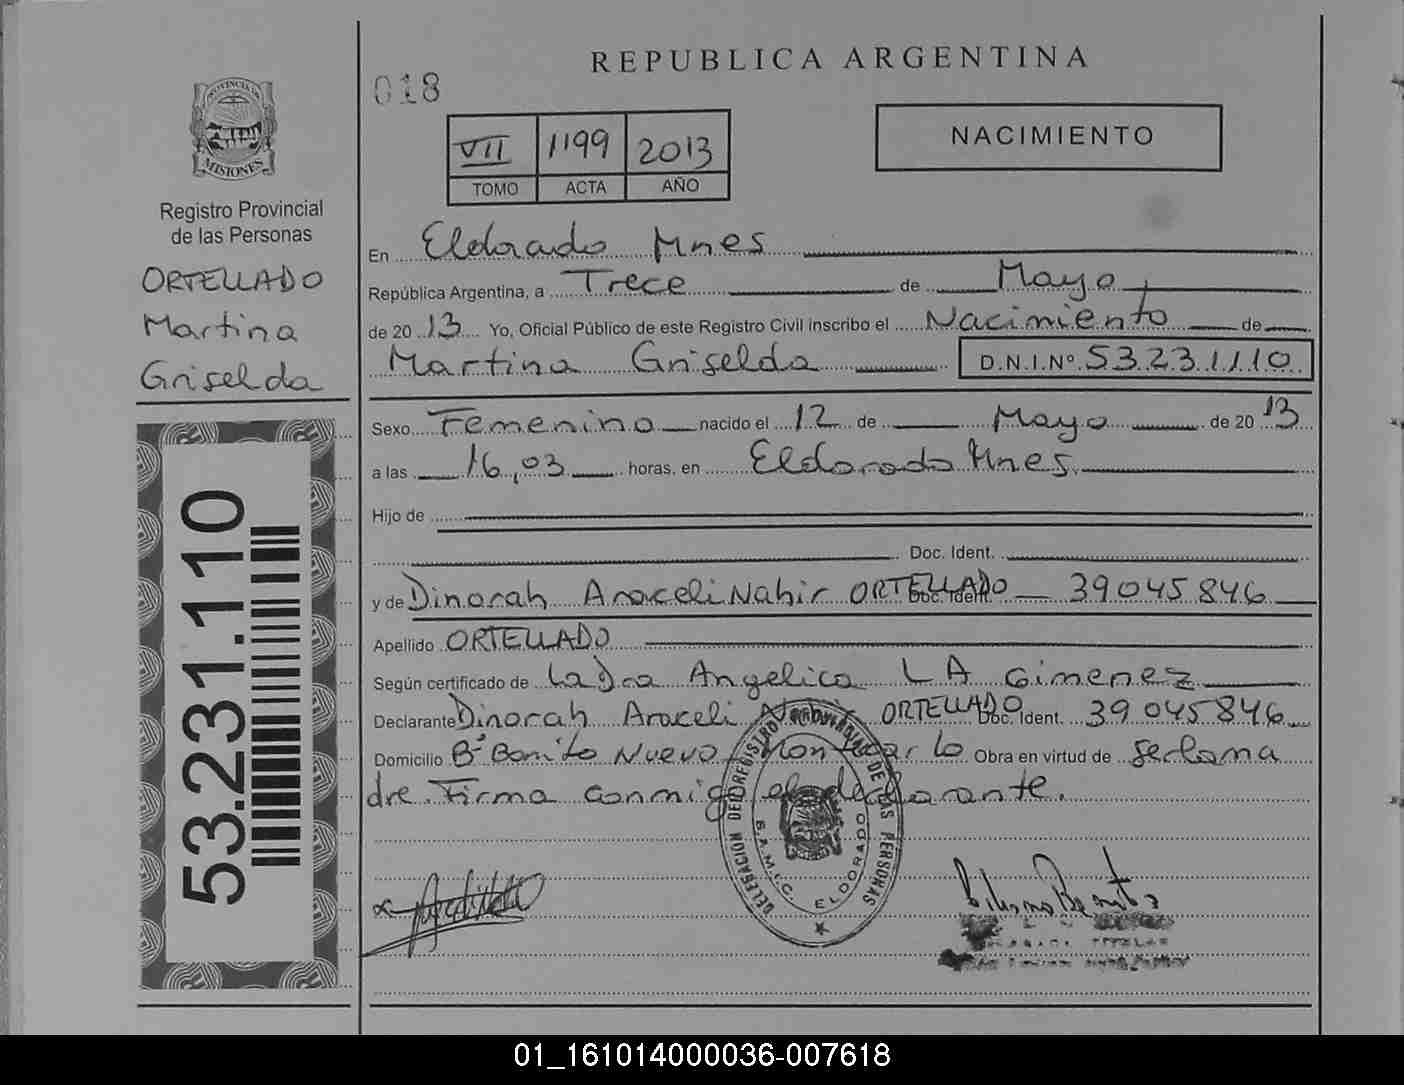 REPUBLICA ARGENTINA
018
PROVINCIA DE
MISIONES
Registro Provincial
de las Personas
ORTELLADO
Martina
Griselda
53.231.110
VII 1199 2013
TOMO ACTA AÑO
NACIMIENTO
En Eldorado Mnes
República Argentina, a Trece de Mayo
de 20 13 Yo, Oficial Público de este Registro Civil inscribo el Nacimiento de
Martina Griselda D.N.I.Nº 53231110
Sexo Femenino nacido el 12 de Mayo de 20 13
a las 16,03 horas, en Eldorado Mnes.
Hijo de
Doc. Ident.
y de Dinorah Araceli Nahir ORTELLADO Doc. Ident. 39045846
Apellido ORTELLADO
Según certificado de La Dra Angelica L A Gimenez
Declarante Dinorah Araceli ORTELLADO Doc. Ident. 39045846
Domicilio Bº Bonito Nuevo Montecarlo Obra en virtud de ser la ma
dre. Firma conmigo el declarante.
DELEGACION DEL REGISTRO DE LAS PERSONAS
S.A.M.I.C. ELDORADO
TITULAR
01_161014000036-007618